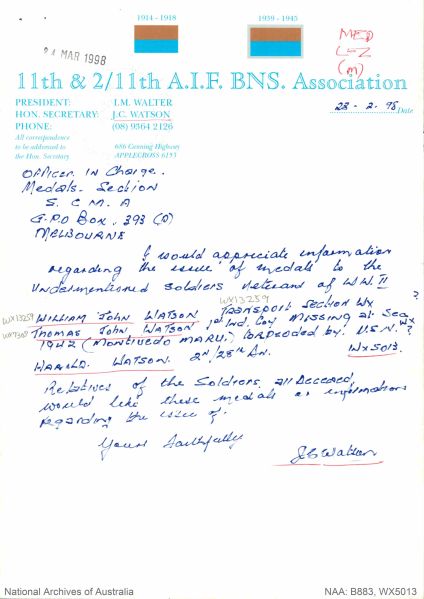 1914 - 1918
1939 - 1945
MED
LEZ
(M)
24 MAR 1998
11th & 2/11th A.I.F. BNS. Association
PRESIDENT: I.M. WALTER
HON. SECRETARY: J.C. WATSON
PHONE: (08) 9364 2126
23-2-98 Date
All correspondence
to be addressed to
the Hon. Secretary
686 Canning Highway
APPLECROSS 6153
Officer In Charge.
Medals. Section
S. C. M. A
G.P.O Box. 393 (D)
MELBOURNE
I would appreciate information
regarding the issue of medals to the
undermentioned soldiers veterans of W.W. II
WX13259
WX13259 WILLIAM JOHN WATSON TRANSPORT SECTION WX ?
THOMAS JOHN WATSON 1st Ind. Coy MISSING at Sea WX
1942 (MONTIVEDO MARU.) torpedoed by. U.S.N. ?
HAROLD. WATSON. 2nd/28th Bn. WX5013.
Relatives of the Soldiers, all Deceased,
would like these medals or information
regarding the issue of.
Yours faithfully
J C Watson
National Archives of Australia
NAA: B883, WX5013